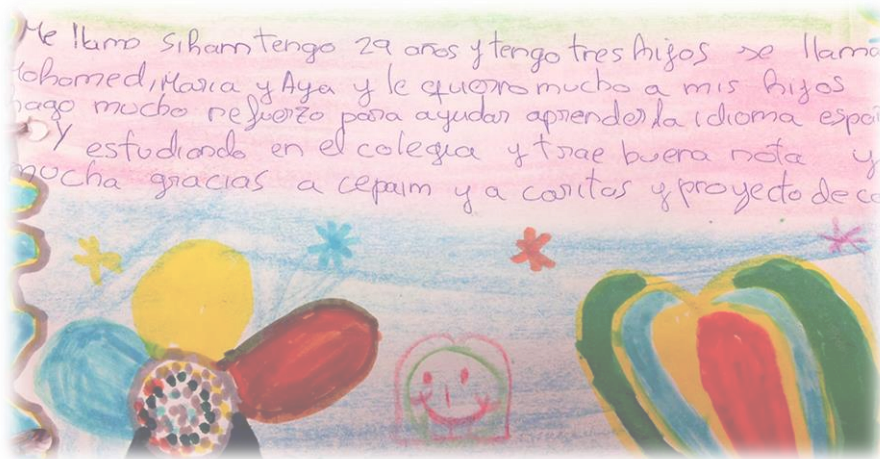 Me llamo Siham tengo 29 años y tengo tres hijos se llama
Mohamed, Maria y Aya y le quiero mucho a mis hijos
hago mucho refuerzo para ayudar aprender la idioma españ
y estudiando en el colegia y trae buena nota y
mucha gracias a cepaim y a caritas y proyecto de